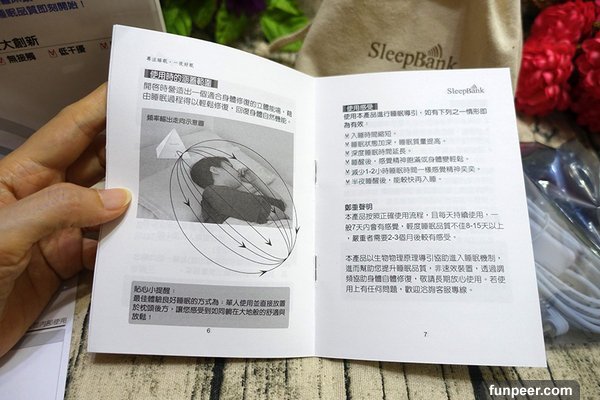 睡眠品質即刻開始！
大創新
無接觸
低干擾
SleepBank
專注睡眠，一夜好眠
使用時的涵蓋範圍
開啓時營造出一個適合身體修復的立體能場，藉
由睡眠過程得以輕鬆修復，回復身體自然機能。
頻率輸出走向示意圖
貼心小提醒：
最佳體驗良好睡眠的方式為：單人使用並直接放置
於枕頭後方，讓您感受到如同躺在大地般的舒適與
放鬆！
6
SleepBank
使用感受
使用本產品進行睡眠導引，如有下列之一情形即
為有效。
✓入睡時間縮短。
✓睡眠狀態加深，睡眠質量提高。
✓深度睡眠時間延長。
✓睡醒後，感覺精神飽滿或身體變輕鬆。
✓減少1-2小時睡眠時間一樣感覺精神奕奕。
✓半夜睡醒後，能較快再入睡。
鄭重聲明
本產品按照正確使用流程，且每天持續使用，一
般7天內會有感覺，輕度睡眠品質不佳8-15天以上
，嚴重者需要2-3個月後較有感受。
本產品以生物物理原理導引協助進入睡眠機制，
進而幫助您提升睡眠品質，非速效裝置，透過調
頻協助身體自體修復，敬請長期放心使用。若使
用上有任何問題，歡迎洽詢客服專線。
7
funpeer.com